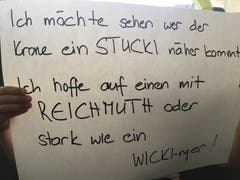 Ich möchte sehen wer der
Krone ein STUCKI näher kommt
Ich hoffe auf einen mit
REICHMUTH oder
stark wie ein
WICKI-nger!